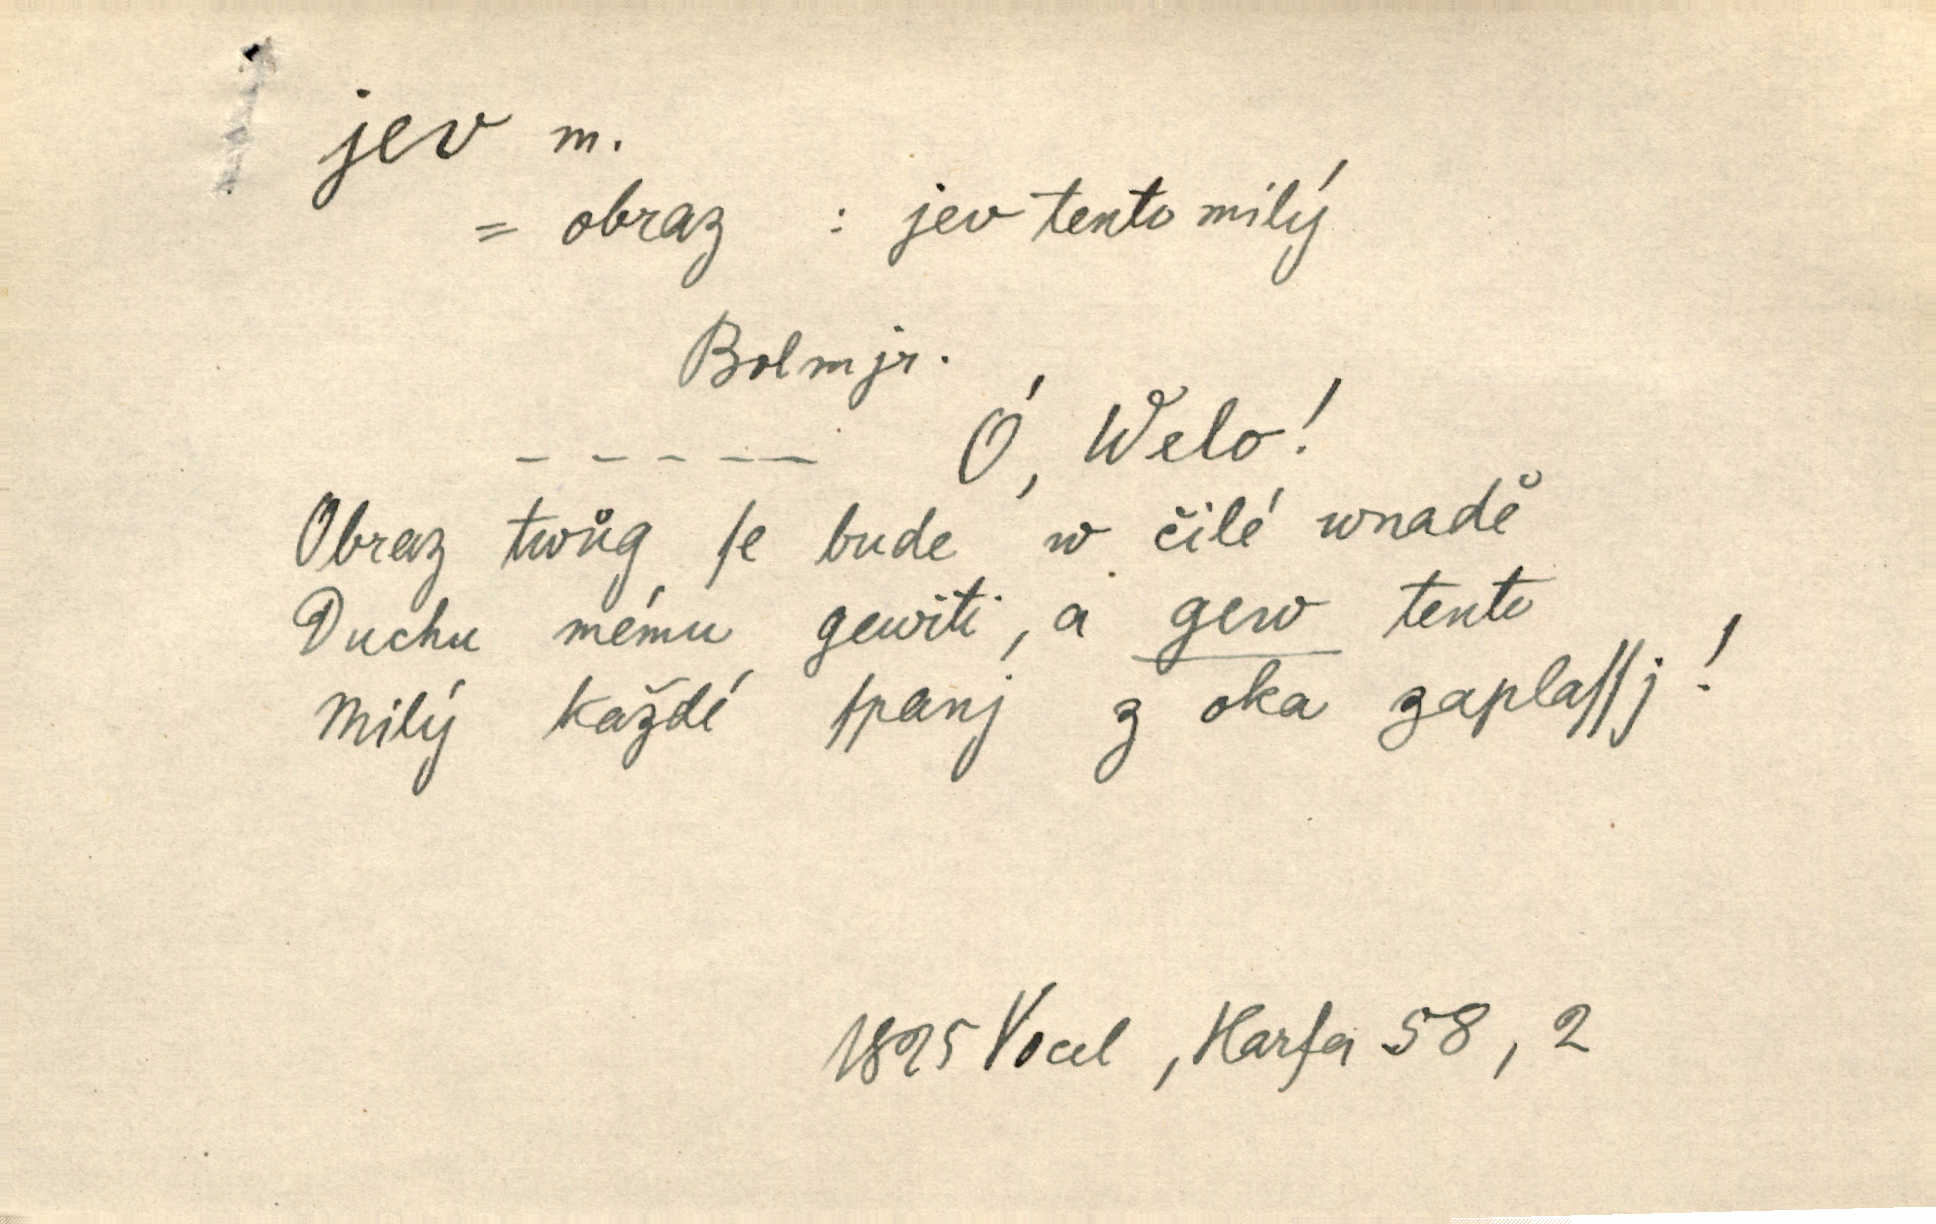 jev m.
= obraz : jev tento milý
Bolmjr.
- - - - - Ó, Welo!
Obraz twůg ſe bude w čilé wnadě
Duchu mému gewiti, a gew tento
Milý každé ſpanj z oka zaplaſſj!
1825 Vocel, Harfa 58, 2